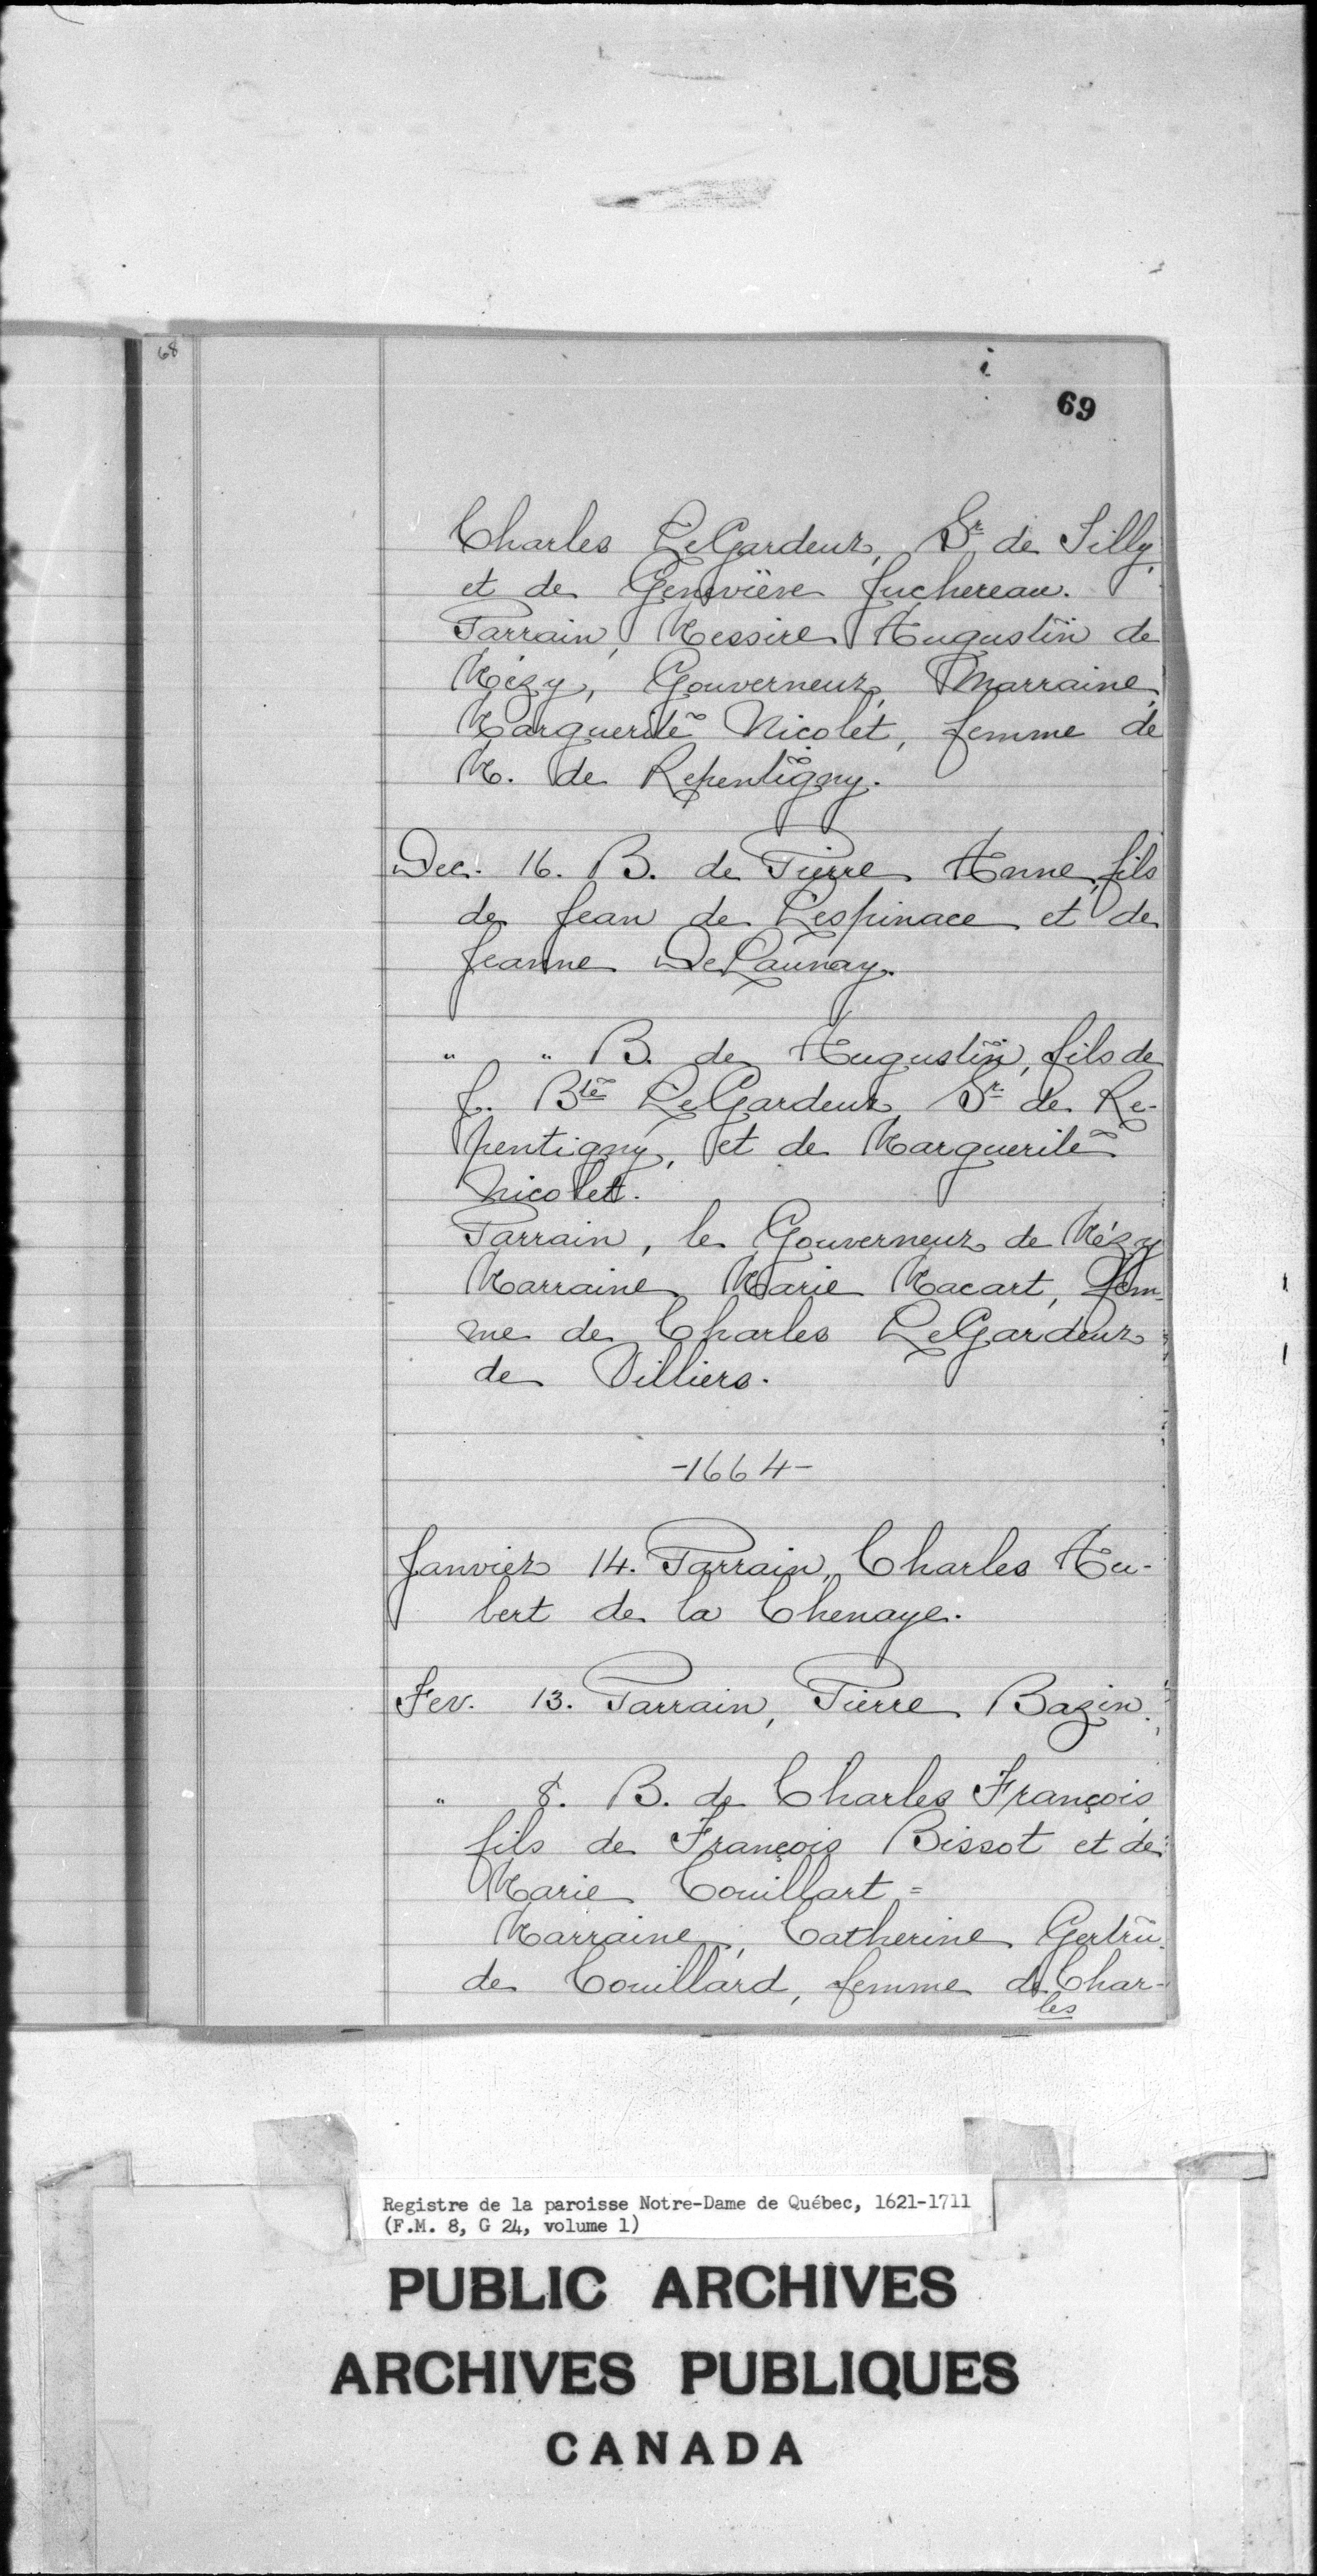 68
69
Charles LeGardeur, Sr de Tilly,
et de Geneviève Juchereau.
Parrain, Messire Augustin de
Mézy, Gouverneur, Marraine,
Marguerite Nicolet, femme de
M. de Repentigny.
Dec. 16. B. de Pierre Anne, fils
de Jean de Lespinace et de
Jeanne DeLaunay.
" " B. de Augustin, fils de
J. Bte LeGardeur Sr de Re-
pentigny, et de Marguerite
Nicolet.
Parrain, le Gouverneur de Mézy
Marraine, Marie Macart, fem-
me de Charles LeGardeur
de Villiers.
-1664-
Janvier 14. Parrain, Charles Au-
bert de la Chenaye.
Fev. 13. Parrain, Pierre Bazin.
" 8. B. de Charles François,
fils de François Bissot et de
Marie Couillart =
Marraine, Catherine Gertru-
de Couillard, femme de Char-
les
Registre de la paroisse Notre-Dame de Québec, 1621-1711
(F.M. 8, G 24, volume 1)
PUBLIC ARCHIVES
ARCHIVES PUBLIQUES
CANADA